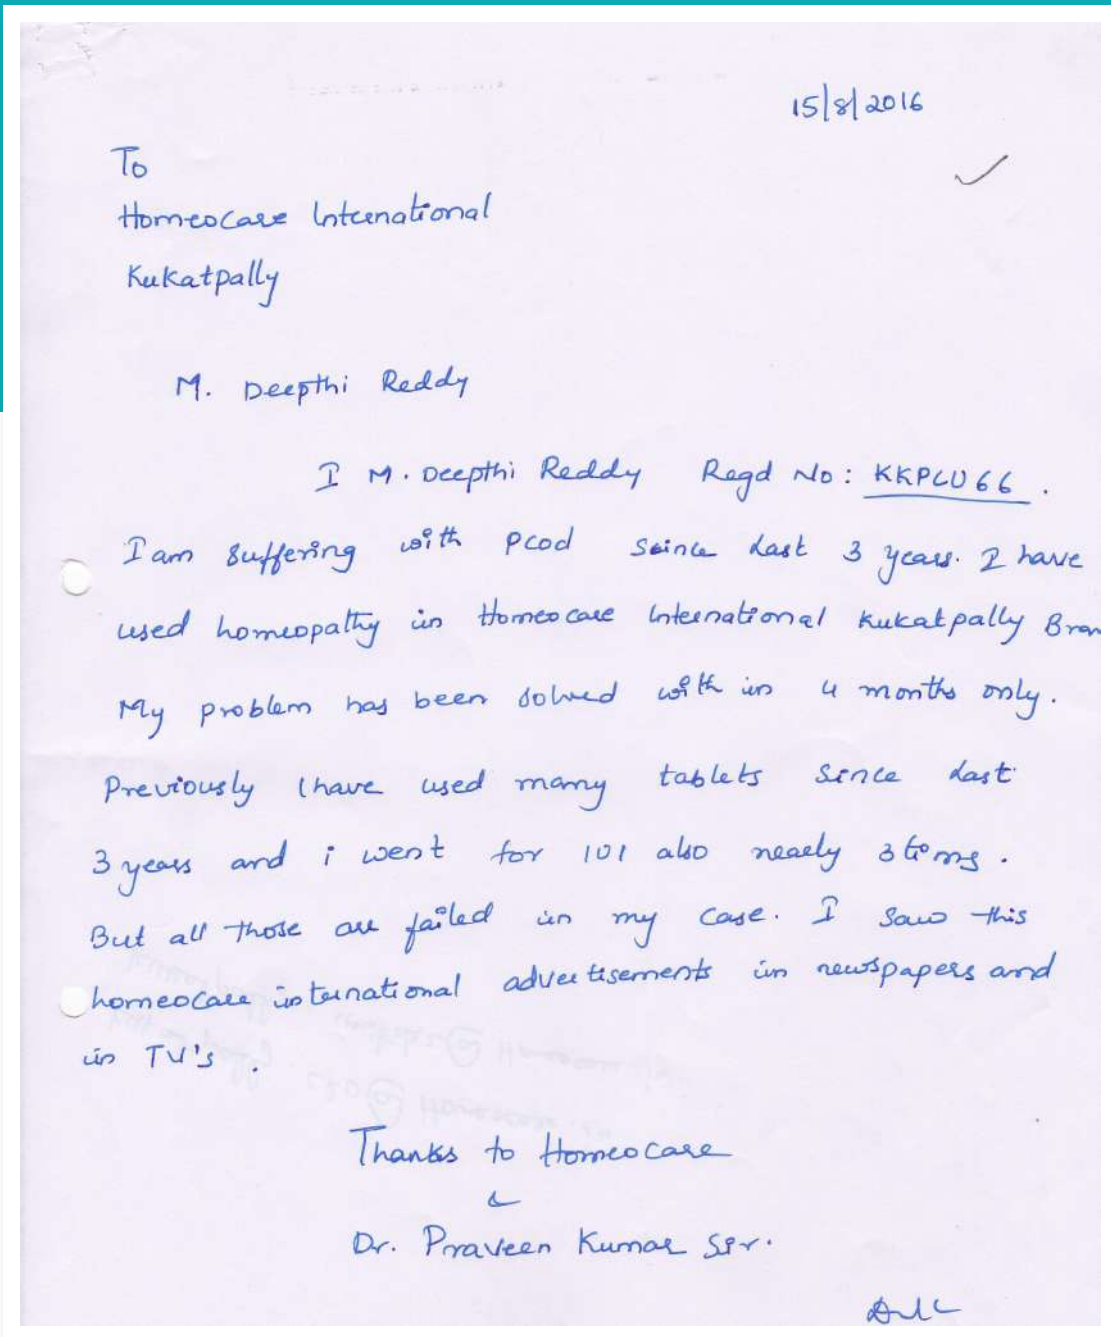 15/8/2016
To
Homeocare International
Kukatpally
M. Deepthi Reddy
I M. Deepthi Reddy Regd No: KKPCU66.
I am suffering with PCOD since last 3 years. I have
used homeopathy in Homeocare International Kukatpally Bran
My problem has been solved with in 4 months only.
Previously I have used many tablets since last
3 years and i went for IUI also nearly 3 times.
But all those are failed in my case. I saw this
homeocare international advertisements in newspapers and
in TV's.
Thanks to Homeocare
&
Dr. Praveen Kumar Sir.